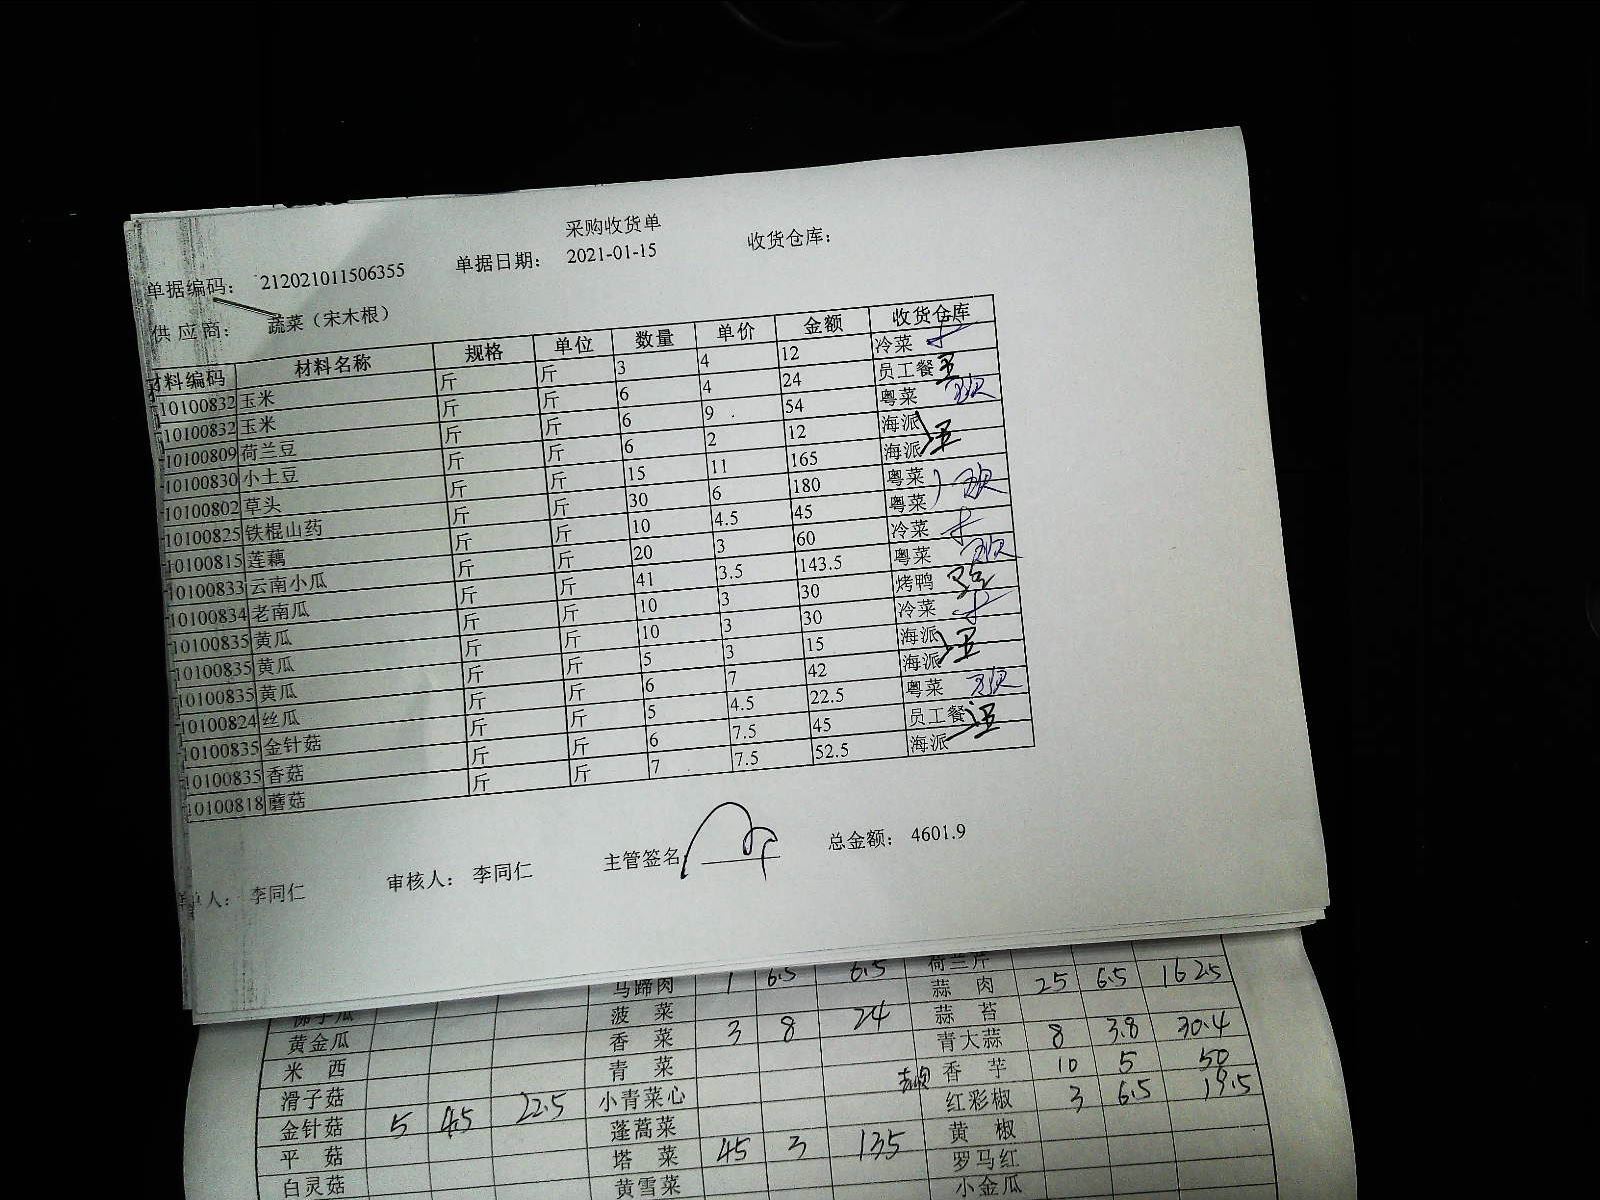 采购收货单
单据编码： 212021011506355 单据日期： 2021-01-15 收货仓库：
供应商： 蔬菜（宋木根）
材料编码 材料名称 规格 单位 数量 单价 金额 收货仓库
10100832 玉米 斤 斤 3 4 12 冷菜
10100832 玉米 斤 斤 6 4 24 员工餐
10100809 荷兰豆 斤 斤 6 9 54 粤菜
10100830 小土豆 斤 斤 6 2 12 海派
10100802 草头 斤 斤 15 11 165 海派
10100825 铁棍山药 斤 斤 30 6 180 粤菜
10100815 莲藕 斤 斤 10 4.5 45 粤菜
10100833 云南小瓜 斤 斤 20 3 60 冷菜
10100834 老南瓜 斤 斤 41 3.5 143.5 粤菜
10100835 黄瓜 斤 斤 10 3 30 烤鸭
10100835 黄瓜 斤 斤 10 3 30 冷菜
10100835 黄瓜 斤 斤 5 3 15 海派
10100824 丝瓜 斤 斤 6 7 42 海派
10100835 金针菇 斤 斤 5 4.5 22.5 粤菜
10100835 香菇 斤 斤 6 7.5 45 员工餐
10100818 蘑菇 斤 斤 7 7.5 52.5 海派
单人： 李同仁 审核人： 李同仁 主管签名 总金额： 4601.9
马蹄肉 1 6.5 6.5 荷兰芹
佛手瓜 菠菜 蒜肉 25 6.5 162.5
黄金瓜 香菜 3 8 24 蒜苔
米西 青菜 青大蒜 8 3.8 30.4
滑子菇 小青菜心 香芋 10 5 50
金针菇 5 4.5 22.5 蓬蒿菜 红彩椒 3 6.5 19.5
平菇 塔菜 45 3 135 黄椒
白灵菇 黄雪菜 罗马红
小金瓜